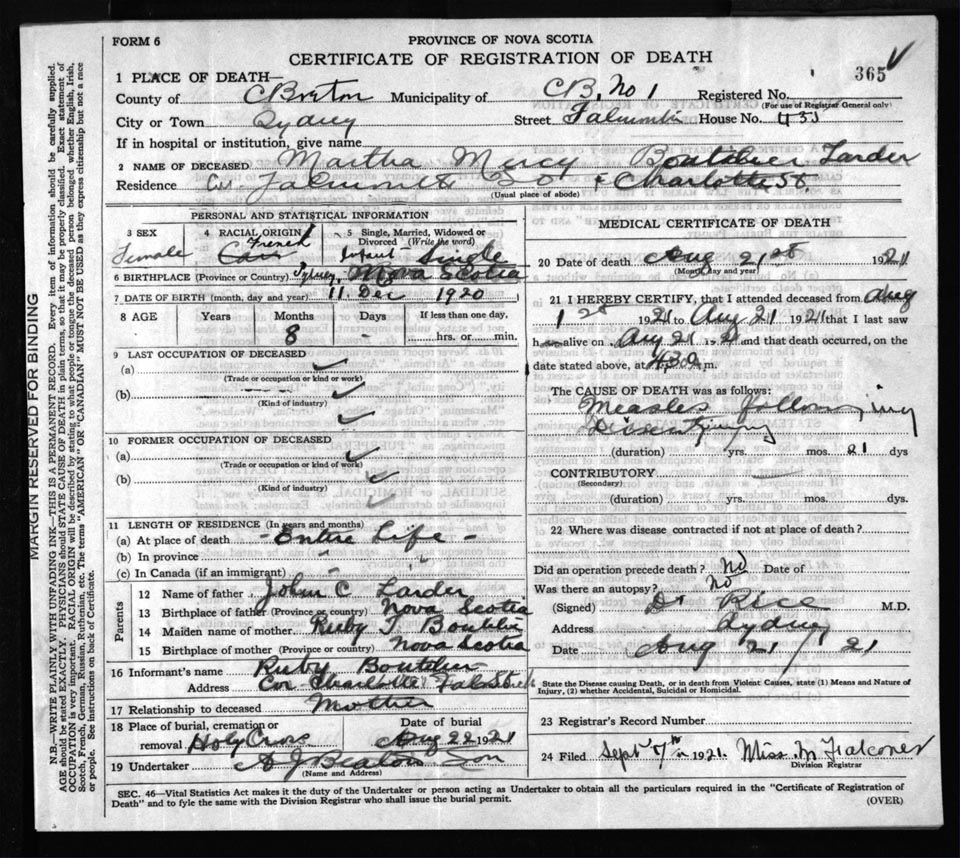 FORM 6
PROVINCE OF NOVA SCOTIA
CERTIFICATE OF REGISTRATION OF DEATH
365
1 PLACE OF DEATH—
County of C Breton Municipality of CB, No 1 Registered No.
(For use of Registrar General only)
City or Town Sydney Street House No.
If in hospital or institution, give name
2 NAME OF DECEASED Martha Mercy Boutilier Larder
Residence Cor & Charlotte St.
(Usual place of abode)
PERSONAL AND STATISTICAL INFORMATION
3 SEX Female
4 RACIAL ORIGIN French
5 Single, Married, Widowed or Divorced (Write the word)
Infant Single
6 BIRTHPLACE (Province or Country) Sydney Nova Scotia
7 DATE OF BIRTH (month, day and year) 11 Dec 1920
8 AGE Years Months Days If less than one day,
8 - hrs. or min.
9 LAST OCCUPATION OF DECEASED
(a)
(Trade or occupation or kind or work)
(b)
(Kind of industry)
10 FORMER OCCUPATION OF DECEASED
(a)
(Trade or occupation or kind of work)
(b)
(Kind of industry)
11 LENGTH OF RESIDENCE (In years and months)
(a) At place of death - Entire Life -
(b) In province "
(c) In Canada (if an immigrant)
Parents
12 Name of father John C Larder
13 Birthplace of father (Province or country) Nova Scotia
14 Maiden name of mother Ruby J Boutilier
15 Birthplace of mother (Province or country) Nova Scotia
16 Informant's name Ruby Boutilier
Address Cor Charlotte
17 Relationship to deceased Mother
18 Place of burial, cremation or Date of burial
removal Holy Cross Aug 22 1921
19 Undertaker A J Beaton Son
(Name and Address)
MEDICAL CERTIFICATE OF DEATH
20 Date of death Aug 21st 1921
(Month, day and year)
21 I HEREBY CERTIFY, that I attended deceased from Aug
1st 1921 to Aug 21 1921 that I last saw
h alive on Aug 21 1921 and that death occurred, on the
date stated above, at 4.30 m.
The CAUSE OF DEATH was as follows:
Measles following
(duration) yrs. mos. 21 dys
CONTRIBUTORY
(Secondary)
(duration) yrs. mos. dys.
22 Where was disease contracted if not at place of death?
Did an operation precede death? No Date of
Was there an autopsy? No
(Signed) Dr Rice M.D.
Address Sydney
Date Aug 21/21
State the Disease causing Death, or in death from Violent Causes, state (1) Means and Nature of Injury, (2) whether Accidental, Suicidal or Homicidal.
23 Registrar's Record Number
24 Filed Sept 7th 1921. Miss M Falconer
Division Registrar
SEC. 46—Vital Statistics Act makes it the duty of the Undertaker or person acting as Undertaker to obtain all the particulars required in the "Certificate of Registration of
Death" and to fyle the same with the Division Registrar who shall issue the burial permit. (OVER)
MARGIN RESERVED FOR BINDING
N.B.—WRITE PLAINLY WITH UNFADING INK—THIS IS A PERMANENT RECORD. Every item of information should be carefully supplied.
AGE should be stated EXACTLY. PHYSICIANS should STATE CAUSE OF DEATH in plain terms, so that it may be properly classified. Exact statement of
OCCUPATION is very important. RACIAL ORIGIN will be described by stating to what people or tongue the deceased person belonged whether English, Irish,
Scotch, French, German, Russian, Ruthenian, etc. The terms "AMERICAN" OR "CANADIAN" MUST NOT BE USED as they express citizenship but not a race
or people. See instructions on back of Certificate.